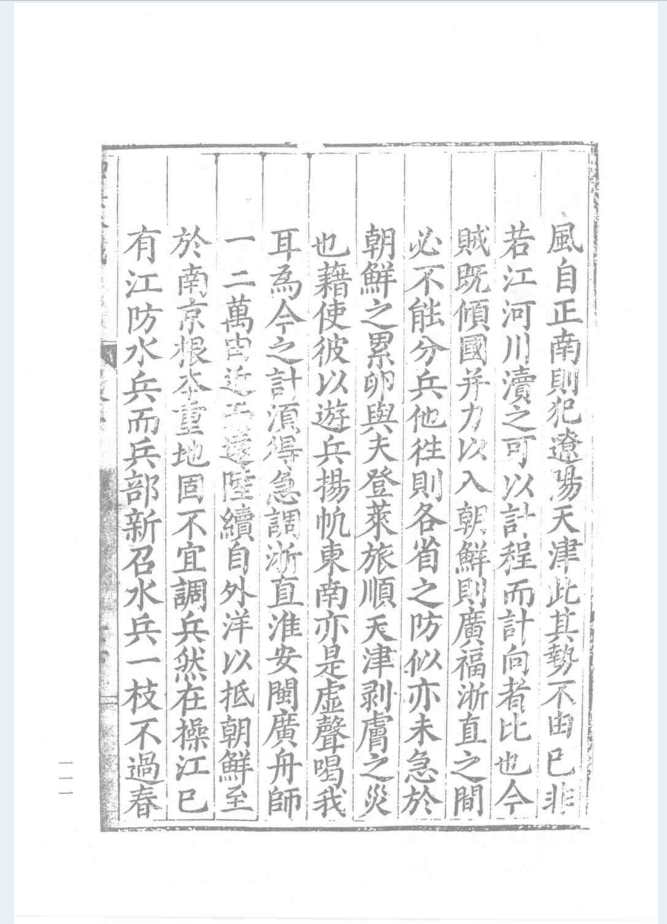 風自正南則犯遼陽天津此其勢不由已非
若江河川瀆之可以計程而計向者比也今
賊既傾國并力以入朝鮮則廣福浙直之間
必不能分兵他徃則各省之防似亦未急於
朝鮮之累卵與夫登萊旅順天津剥膚之災
也藉使彼以遊兵揚帆東南亦是虛聲喝我
耳為今之計須得急調浙直淮安閩廣舟師
一二萬由近而遠陸續自外洋以抵朝鮮至
於南京根本重地固不宜調兵然在操江已
有江防水兵而兵部新召水兵一枝不過春
一一一